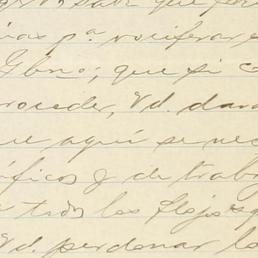 saber que
pª vociferar
Gbno; que si
proceder, Vd. dara
que aquí se nec
ficos y de trabaj
todos los flojos q
Vd. perdonar lo